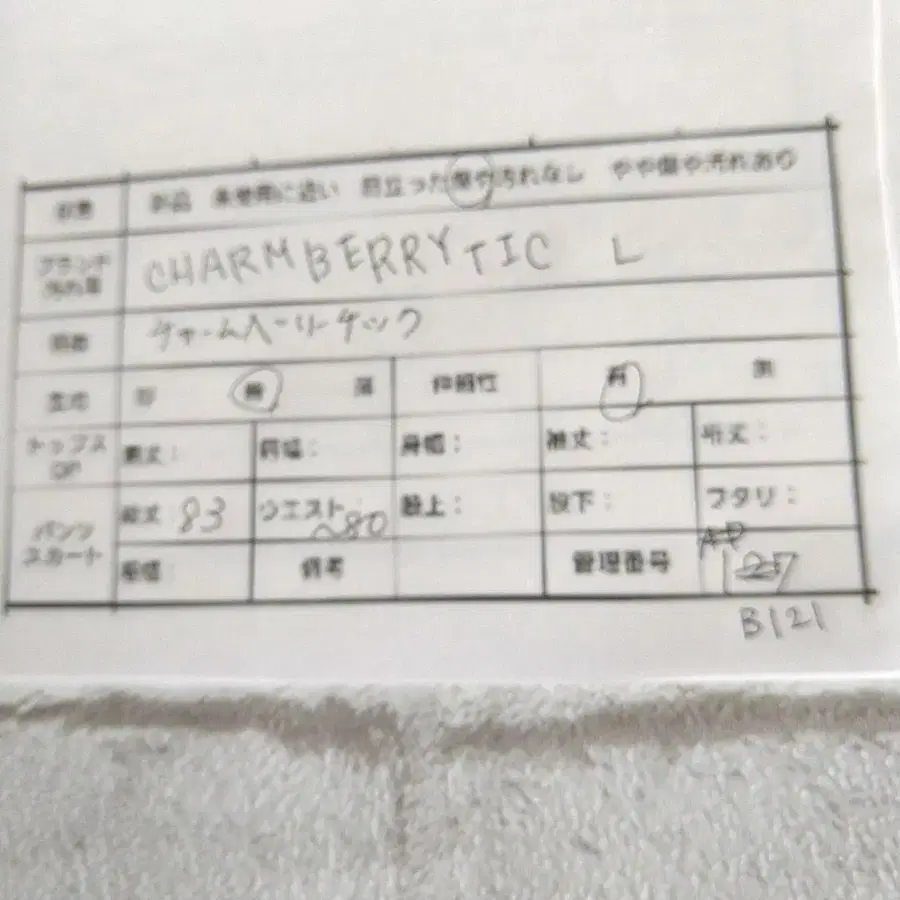 状態 新品 未使用に近い 目立った傷や汚れなし やや傷や汚れあり
ブランド CHARMBERRYTIC L
チャームベーリーチック
生地 厚 普 薄 伸縮性 有 無
トップス 着丈： 肩幅： 身幅： 袖丈： 裄丈：
OP
パンツ 総丈：83 ウエスト：~80 股上： 股下： ワタリ：
スカート
裾幅： 備考 管理番号 127
B121